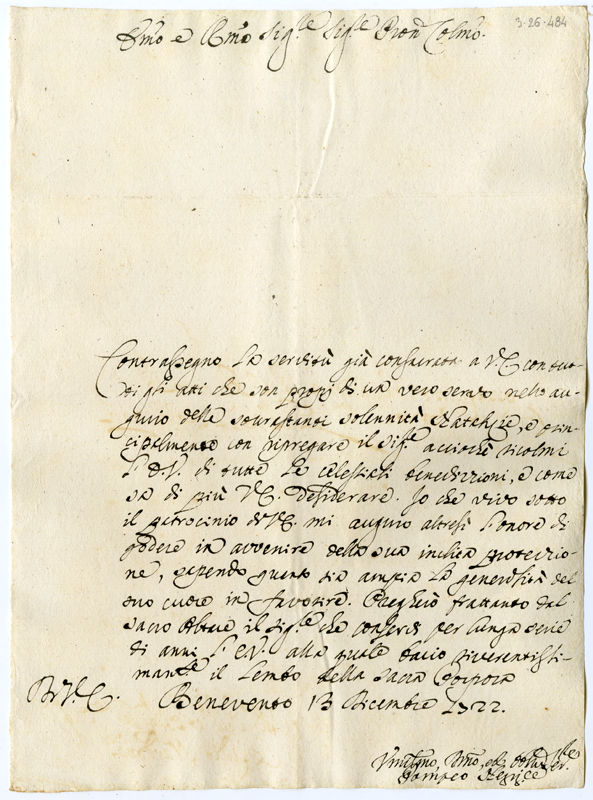 3-26-484
Em̃o e Rm̃o Sig.re Sig.re Pron Colmo.
Contrassegno la servitù già consacrata a V.E. con tut-
ti gli atti che son proprj di un vero servo nello au-
gurio delle sourastanti solennità Natalizie, e prin-
cipalmente con ripregare il Sig.re acciochè ricolmi
l'E.V. di tutte le celestiali benedizzioni, e come
sa di più V.E. desiderare. Io che vivo sotto
il patrocinio di V.E. mi auguro altresì l'onore di
godere in avvenire della sua inclita protezzio-
ne, sapendo quanto sia ampia la generosità del
suo cuore in favorire. Preghiò frattanto dal
sacro Altare il Sig.re che conservi per lunga serie
di anni l'E.V. alla quale bacio riverentissi-
mam.te il lembo della Sacra Porpora
Di V.E. Benevento 13 Dicembre 1722.
Umilmo, Dmo, ed Obblmo Ser.re
Pompeo